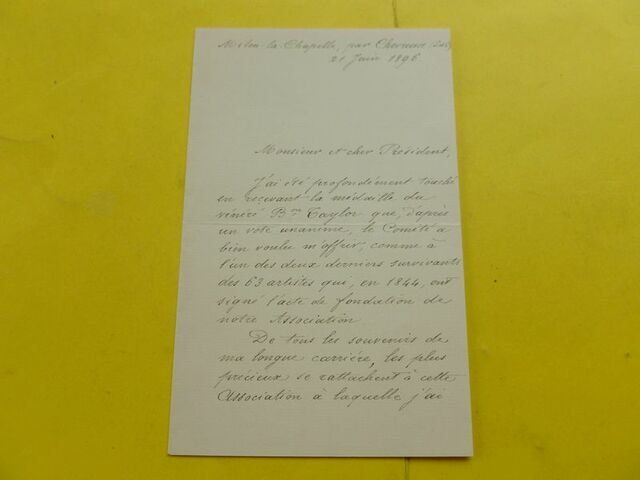 Milon-la-Chapelle, par Chevreuse (S&O)
21 Juin 1896
Monsieur et cher Président,
J'ai été profondément touché
en recevant la médaille du
vénéré Bon Taylor que, d'après
un vote unanime, le Comité a
bien voulu m'offrir, comme à
l'un des deux derniers survivants
des 63 artistes qui, en 1844, ont
signé l'acte de fondation de
notre Association
De tous les souvenirs de
ma longue carrière, les plus
précieux se rattachent à cette
Association à laquelle j'ai